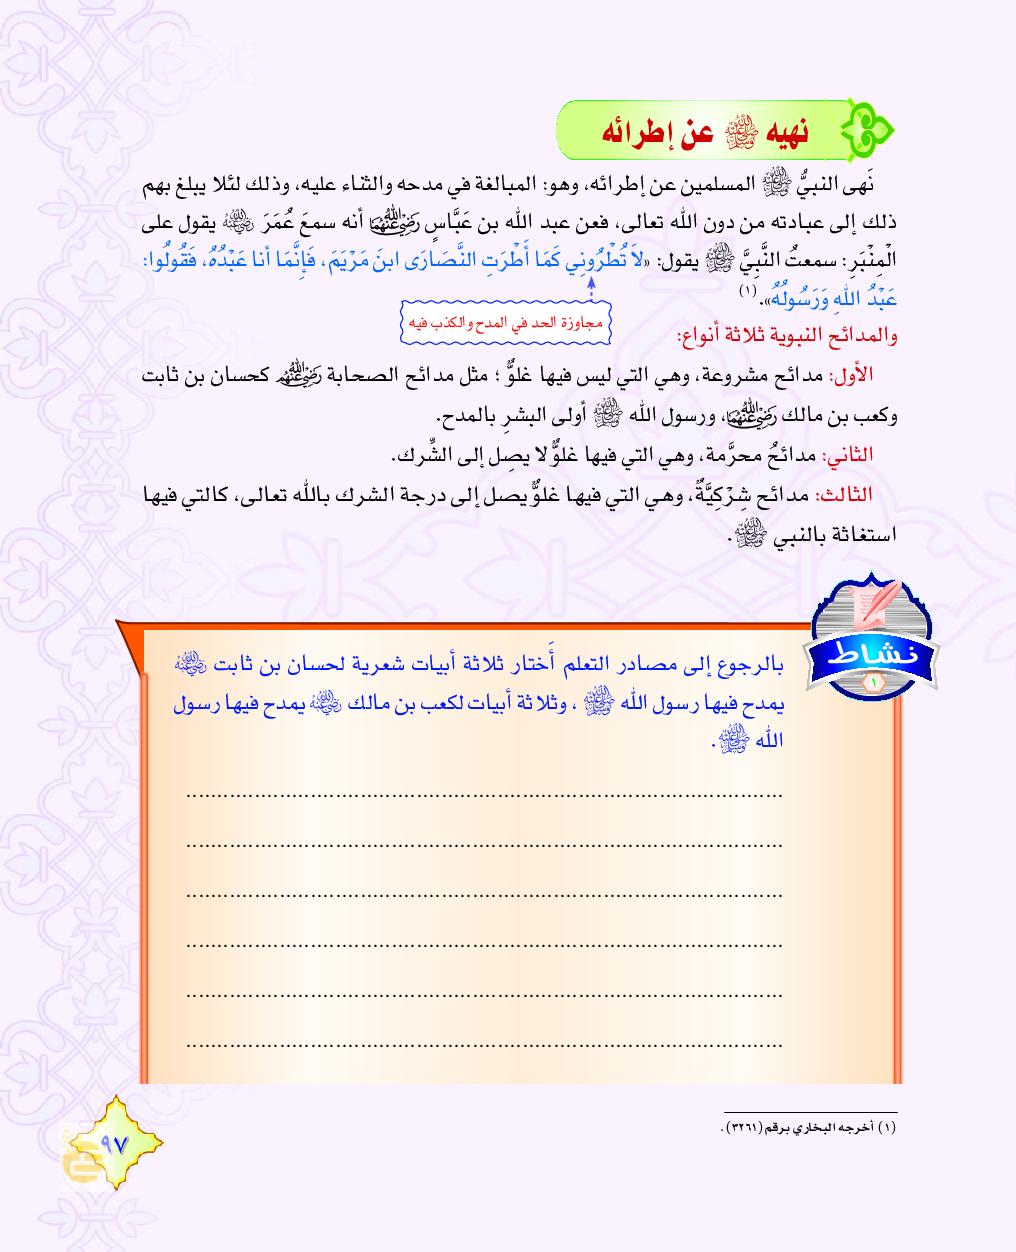 نهيه ﷺ عن إطرائه
نَهى النبيُّ ﷺ المسلمين عن إطرائه، وهو: المبالغة في مدحه والثناء عليه، وذلك لئلا يبلغ بهم
ذلك إلى عبادته من دون الله تعالى، فعن عبد الله بن عَبَّاسٍ رضي الله عنهما أنه سمعَ عُمَرَ رضي الله عنه يقول على
الْمِنْبَرِ: سمعتُ النَّبِيَّ ﷺ يقول: «لاَ تُطْرُونِي كَمَا أَطْرَتِ النَّصَارَى ابنَ مَرْيَمَ، فَإِنَّمَا أنا عَبْدُهُ، فَقُولُوا:
عَبْدُ اللهِ وَرَسُولُهُ».(١)
مجاوزة الحد في المدح والكذب فيه
والمدائح النبوية ثلاثة أنواع:
الأول: مدائح مشروعة، وهي التي ليس فيها غلوٌّ ؛ مثل مدائح الصحابة رضي الله عنهم كحسان بن ثابت
وكعب بن مالك رضي الله عنهما، ورسول الله ﷺ أولى البشرِ بالمدح.
الثاني: مدائحُ محرَّمة، وهي التي فيها غلوٌّ لا يصِل إلى الشِّرك.
الثالث: مدائح شِرْكِيَّةٌ، وهي التي فيها غلوٌّ يصل إلى درجة الشرك بالله تعالى، كالتي فيها
استغاثة بالنبي ﷺ.
نشاط
١
بالرجوع إلى مصادر التعلم أَختار ثلاثة أبيات شعرية لحسان بن ثابت رضي الله عنه
يمدح فيها رسول الله ﷺ ، وثلاثة أبيات لكعب بن مالك رضي الله عنه يمدح فيها رسول
الله ﷺ.
(١) أخرجه البخاري برقم (٣٢٦١).
٩٧